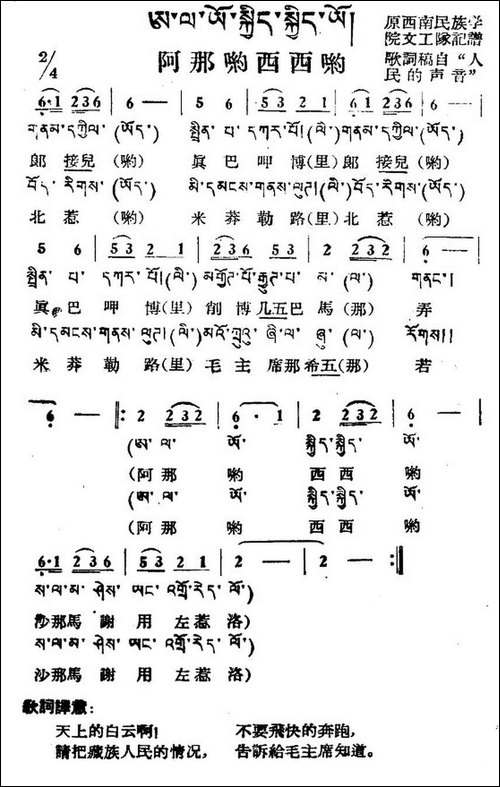 ཨ་ལ་ཡོ་སྐྱིད་སྐྱིད་ཡོ།
原西南民族学
院文工隊記譜
2/4
阿那喲西西喲
歌詞稿自“人
民的声音”
6·1 236 | 6 — | 5 6 | 53 2 1 | 61 236 | 6 — |
གནམ་དཀྱིལ་(ཡོད་) སྤྲིན་པ་དཀར་པོ།(ལི་)གནམ་དཀྱིལ་(ཡོད་)
郞 接兒 (喲) 眞 巴 呷 博(里) 郞 接兒 (喲)
བོད་རིགས་(ཡོད་) མི་དམངས་གནས་ལུཊ།(ལི་)བོད་རིགས་(ཡོད་)
北 惹 (喲) 米 莽 勒 路(里) 北 惹 (喲)
5 6 | 53 2 1 | 236 53 | 2 232 | 6 — |
སྤྲིན་པ་དཀར་པོ།(ལི་)
眞 巴 呷 博(里) 削 博 几五巴 馬 (那) 弄
མི་དམངས་གནས་ལུཊ།(ལི་)མའོ་ཀྲུའུ་ཞི་ལ་ཞུ་(ལ་) རོགས།།
米 莽 勒 路(里) 毛 主 席那希五(那) 若
6 — |: 2 232 | 6 · 1 | 2 232 | 6 — |
(ཨ་ལ་ ཡོ་ སྐྱིད་སྐྱིད་ ཡོ་
(阿 那 喲 西 西 喲
(ཨ་ལ་ ཡོ་ སྐྱིད་སྐྱིད་ ཡོ་
(阿 那 喲 西 西 喲
6·1 236 | 53 2 1 | 2 — | 2 — :|
ས་ལ་མ་ཤེས་ཡང་འགྲོ་རེད་ལོ་)
沙那馬 謝 用 左惹 洛)
ས་ལ་མ་ཤེས་ཡང་འགྲོ་རེད་ལོ་)
沙那馬 謝 用 左惹 洛)
歌詞譯意:
天上的白云啊! 不要飛快的奔跑,
請把藏族人民的情况, 告訴給毛主席知道。